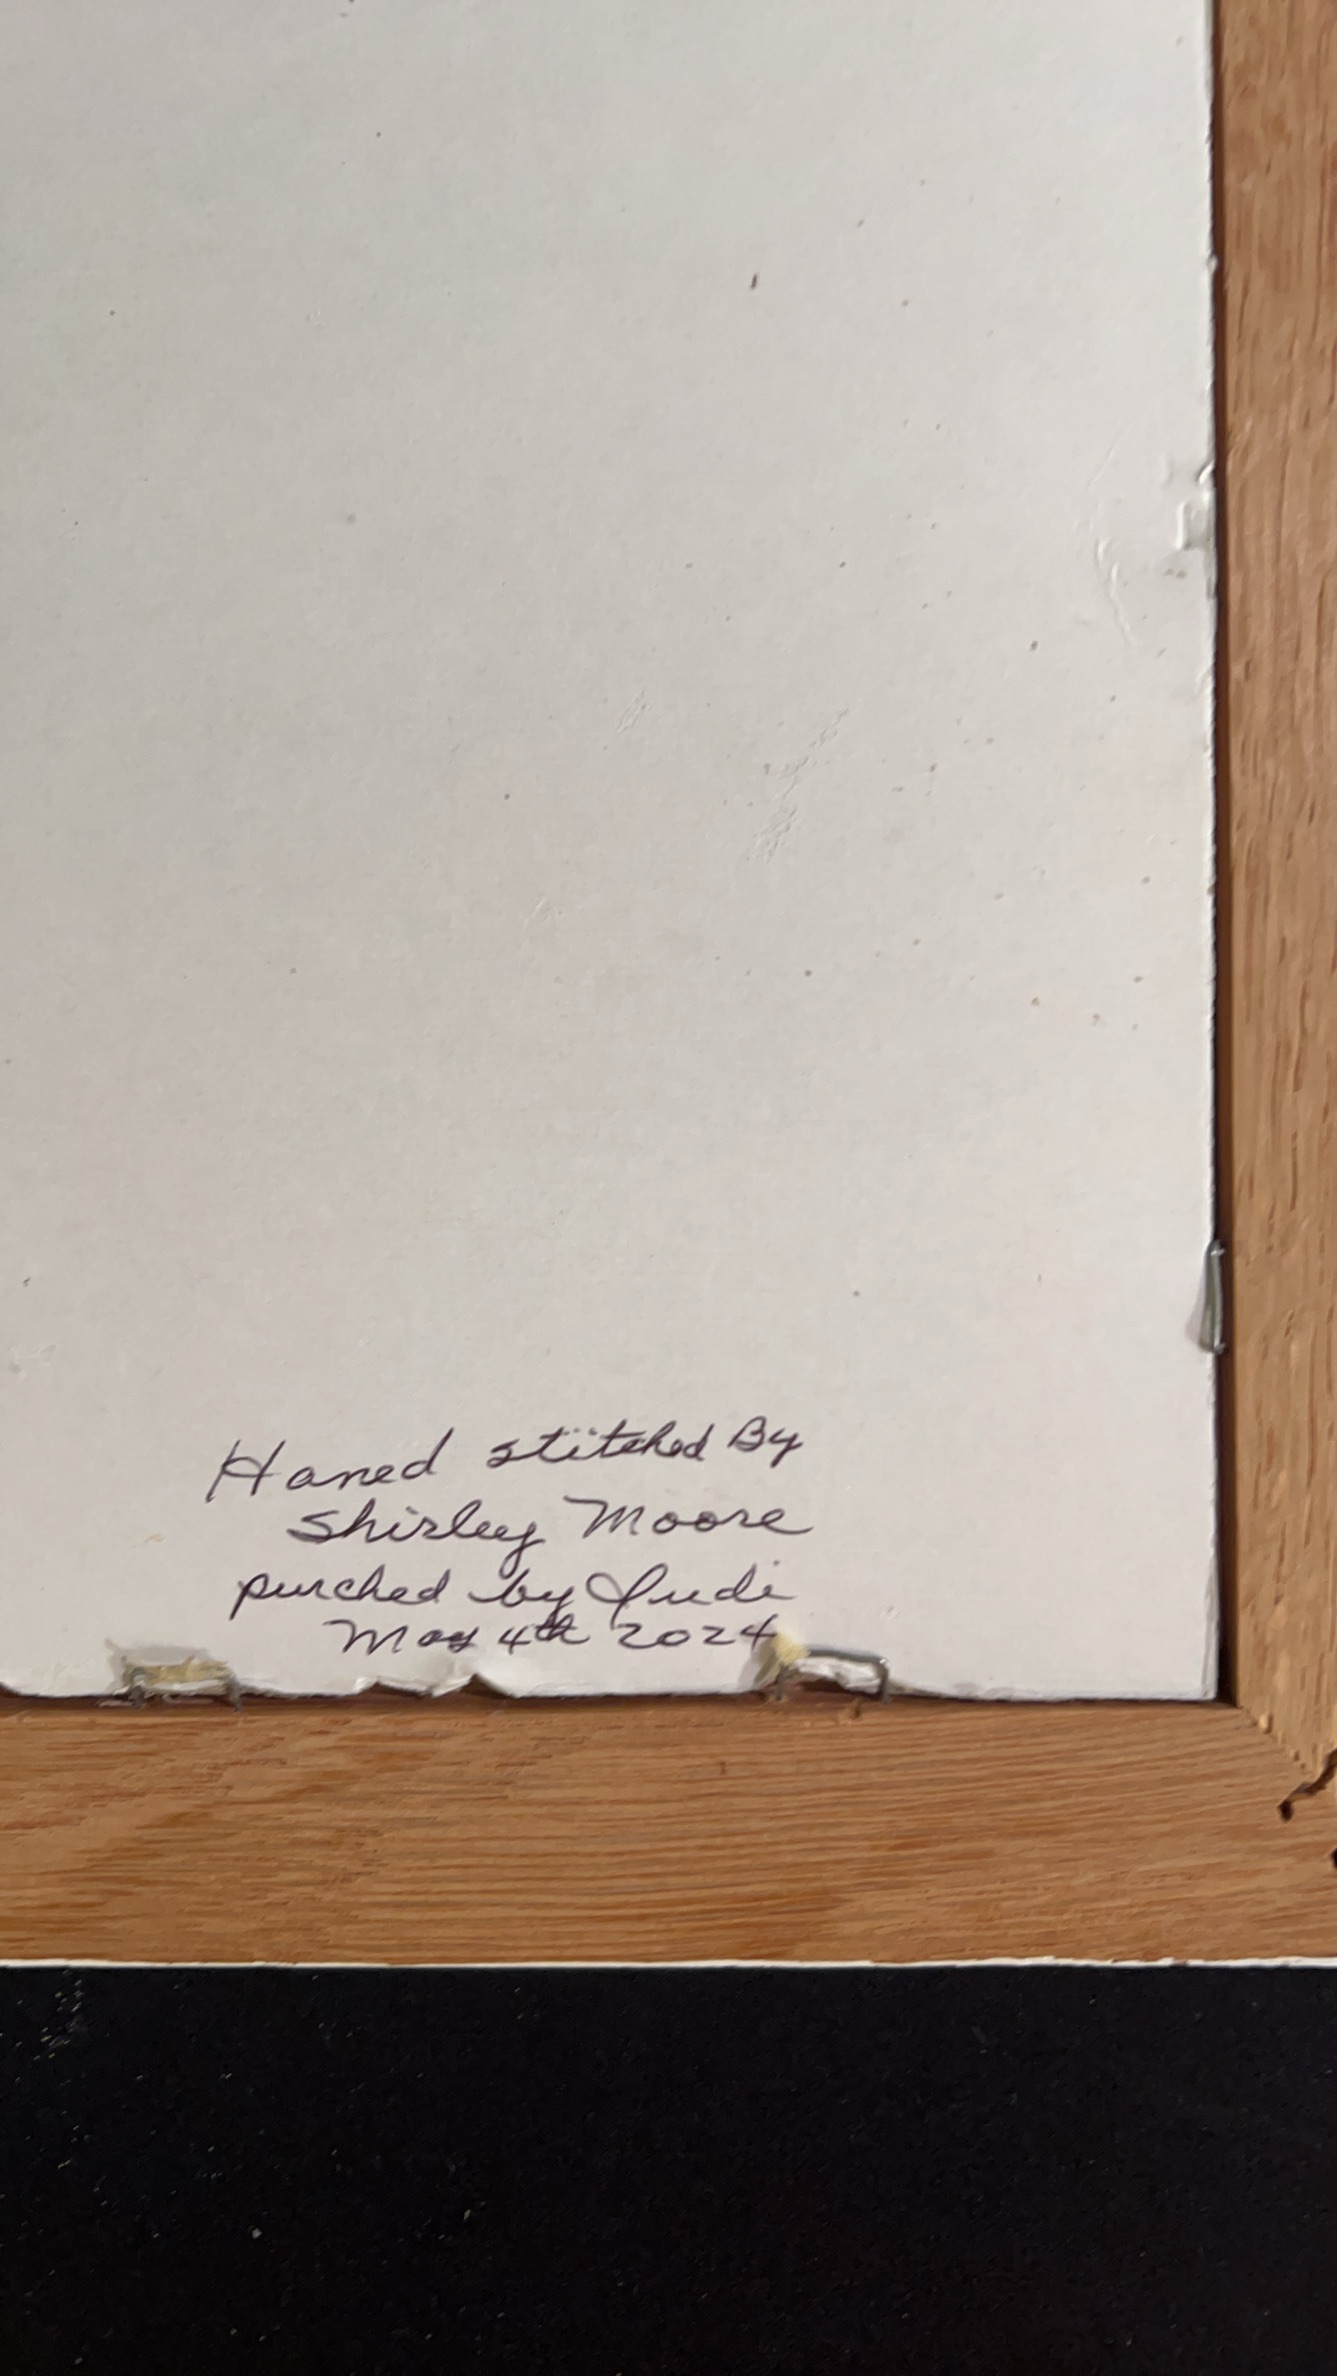 Haned stitched By
Shirley Moore
purched by Judi
May 4th 2024